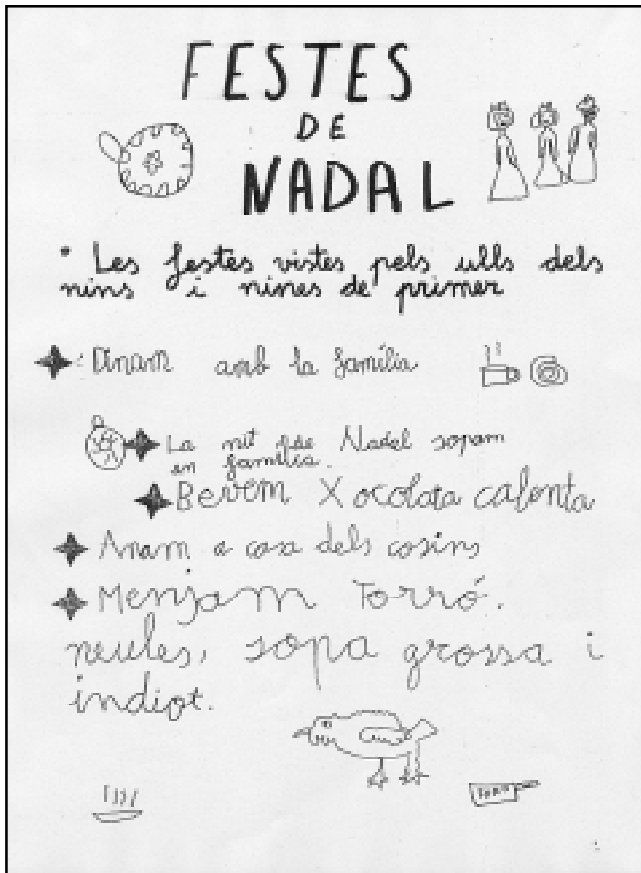 FESTES
DE
NADAL
• Les festes vistes pels ulls dels
nins i nines de primer
Dinam amb la família
La nit de Nadal sopam
en família.
Bevem Xocolata calenta
Anam a casa dels cosins
Menjam Torró.
neules, sopa grossa i
indiot.